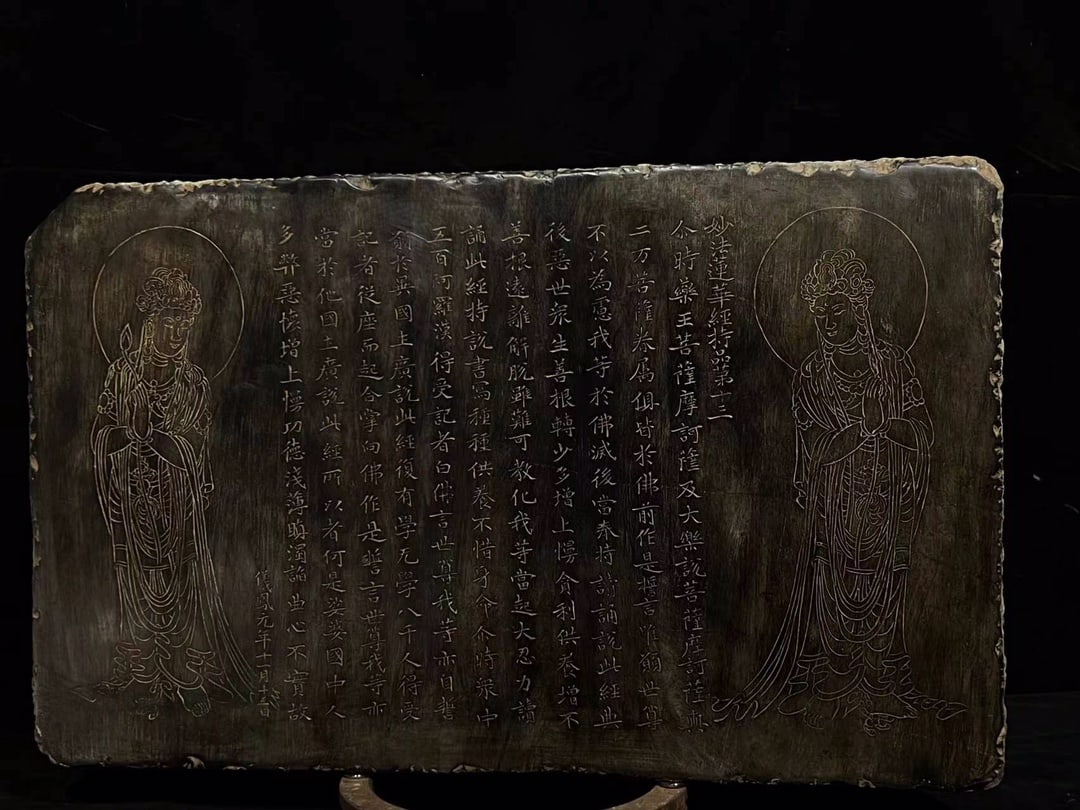 妙法蓮華經持品第十三
尒時藥王菩薩摩訶薩及大樂說菩薩摩訶薩與
二万菩薩眷属俱皆於佛前作是誓言唯願世尊
不以為慮我等於佛滅後當奉持讀誦說此經典
後惡世衆生善根轉少多增上慢貪利供養增不
善根遠離解脫雖難可教化我等當起大忍力讀
誦此經持說書寫種種供養不惜身命尒時衆中
五百阿羅漢得受記者白佛言世尊我等亦自誓
願於異國土廣說此經復有學无學八千人得受
記者從座而起合掌向佛作是誓言世尊我等亦
當於他國土廣說此經所以者何是娑婆國中人
多弊惡懷增上慢功德淺薄瞋濁諂曲心不實故
儀鳳元年十一月十五日